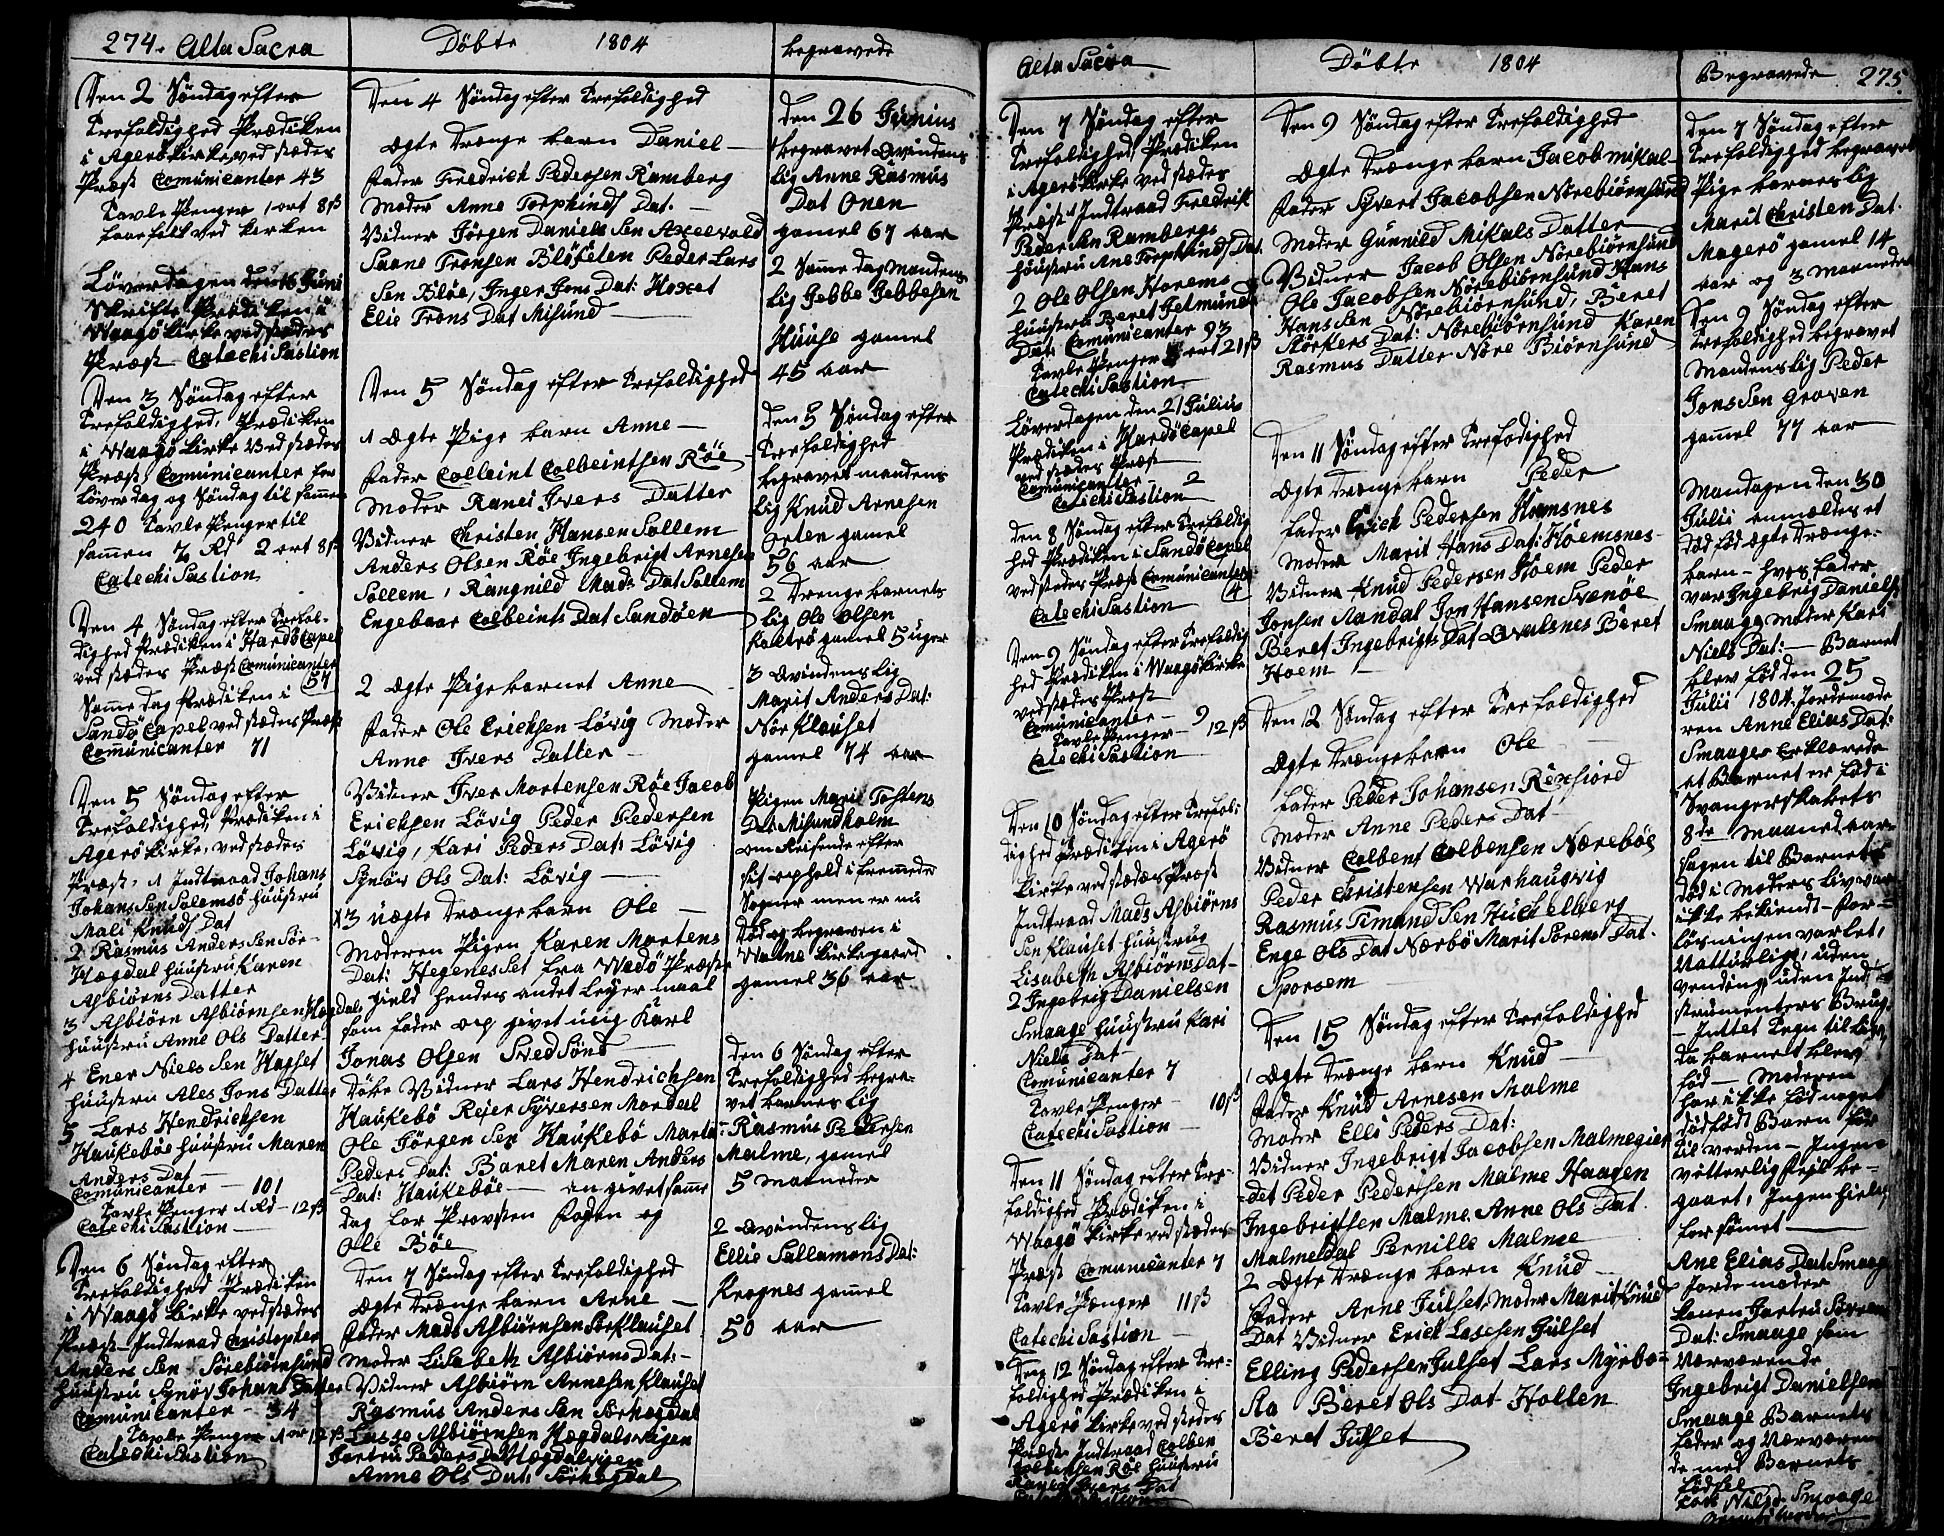 274. Alta Sacra
Den 2 Søndag efter
Trefoldighed Prædiken
i Agerø kirke ved stedes
Præst Comunicanter 43
Tavle Penger 1 ort 8 ß
ved kirken
Løverdagen den 16 Juni
Skrifte Prædiken i
Waagø kirke ved stedes
Præst Catechisastion
Den 3 Søndag efter
Trefoldighed, Prædiken
i Waagø kirke ved stedes
Præst, Comunicanter for
Løverdag og Søndag til sammen
240 Tavle Penger til
sammen Rd 2 ort 8 ß
Catechisastion
Den 4 Søndag efter Trefol-
dighed Prædiken i Harøe Capel
ved stedes Præst Comunicanter
57
Samme dag Prædiken i
Sandø Capel ved stedes Præst
Comunicanter 71
Den 5 Søndag efter
Trefoldighed, Prædiken i
Agerø kirke, ved stedes
Præst, 1 Indtraad Johans
Johansen Solemsø hustru
Mali Knuds Dat
2 Rasmus Andersen Sør-
Hægdal hustru Karen
Asbiørns Datter
3 Asbiørn Asbiørnsen Hægdal
hustru Anne Ols Datter
4 Ener Nielsen Hagset
hustru Ales Jons Datter
5 Lars Hendrichsen
Haukebøe hustru Maren
Anders Dat
Comunicanter - 101
Tavle Penger 1 Rd - 12 ß
Catechisastion
Den 6 Søndag efter
Trefoldighed Prædiken
i Waagø kirke ved stedes
Præst - Indtraad Christopher
Andersen Sørebiørnsund
hustru Synøv Johans Datter
Comunicanter - 34
Tavle Penger 1 ort 12 ß
Catechisastion
Døbte 1804
Den 4 Søndag efter Trefoldighed
Ægte Drenge barn Daniel
Fader Fredrich Pedersen Ramberg
Moder Anne Torphinds Dat.
Vidner Jørgen Danielsen Axelvold
Saane Tronsen Bløfelen Peder Lars
Sen Bløe, Inger Jons Dat: Hoxet
Elie Trons Dat Misund
Den 5 Søndag efter Trefoldighed
1 Ægte Pige barn Anne
Fader Colleint Colbeintsen Røe
Moder Ranei Ivers Datter
Vidner Christen Hansen Sollem
Anders Olsen Røe Ingebrigt Arnesen
Sollem, Rangnild Mads Dat Sollem
Engebaar Colbeints Dat Sandøen
2 Ægte Pigebarnet Anne
Fader Ole Erichsen Løvig Moder
Anne Ivers Datter
Vidner Iver Mortensen Røe Jacob
Erichsen Løvig Peder Pedersen
Løvig, Kari Peders Dat: Løvig
Synøv Ols Dat: Løvig
3 uægte Drenge barn Ole
Moderen Pigen Karen Mortens
Dat: Hegeneset fra Wedø Præste
gield hendes andet Leyermaal
som fader opgivet ung Karl
Jonas Olsen Svedsønd
Døbe Vidner Lars Hendrichsen
Haukebø Rejer Syversen Mordal
Ole Jørgensen Haukebø Marta
Peders Dat: Baret Maren Anders
Dat: Haukebøe - angivet samme
dag for Provsten Fogden og
Ole Bøe
Den 7 Søndag efter Trefoldighed
Ægte Drenge barn Arne
Fader Mads Asbiørnsen Sørklauset
Moder Lisabeth Asbiørns Dat:
Vidner Asbiørn Annesen Klauset
Rasmus Andersen Sørhægdal
Lasse Asbiørnsen Hægdalsvigen
Jertru Peders Dat Hægdalvigen
Anne Ols Dat: Sørhægdal
begravede
Den 26 Junius
begravet Qvindens
Lig Anne Rasmus
Dat Onen
gamel 67 aar
2 Samme dag Mandens
Lig Jebbe Jebbesen
Huuse gamel
45 aar
Den 5 Søndag efter
Trefoldighed
begravet mandens
Lig Knud Arnesen
Orten gamel
56 aar
2 Drengebarnets
Lig Ole Olsen
gamel 5 uger
3 Qvindens Lig
Marit Anders Dat:
Nør Klauset
gamel 74 aar
Pigen Marit Tostens
Dat Misundholm
om Reisende efter
sit ophold i fremmede
Sogner men er nu
død og begraven i
Malme kirkegaard
gamel 36 aar
Den 6 Søndag efter
Trefoldighed begra-
vet barnes Lig
Rasmus Pedersen
Malme, gamel
5 Maaneder
2 Qvindens Lig
Ellie Sallamons Dat:
Krognes gamel
50 aar
Alta Sacra
Den 7 Søndag efter
Trefoldighed Prædiken
i Agerø kirke ved stedes
Præst Indtraad Fredrik
Pedersen Rambergs
hustru Ane Torphinds Dat
2 Ole Olsen Horems
hustru Beret Jetmunds
Dat: Comunicanter 93
Tavle Penger ort 21 ß
Catechisastion
Løverdagen den 21 Julius
Prædiken i Harøe Capel
ved stedes Præst
Comunicanter 2
Catechisastion
Den 8 Søndag efter Trefoldig
hed Prædiken i Sandø Capel
ved stedes Præst Comunicanter
4
Catechisastion
Den 9 Søndag efter Trefoldig
hed Prædiken i Waagø kirke
ved stedes Præst
Comunicanter - 9
Tavle Penger - 12 ß
Catechisastion
Den 10 Søndag efter Trefol:
dighed Prædiken i Agerø
kirke ved stedes Præst
Indtraad Mads Asbiørns
Sen Klauset hustrue
Lisabeth Asbiørns Dat
2 Ingebrig Danielsen
Smaage hustru Kari
Niels Dat
Comunicanter 7
Tavle Penger - 10 ß
Catechisastion
Den 11 Søndag efter Tre-
foldighed Prædiken i
Waagø kirke ved stedes
Præst Comunicanter 7
Tavle Penger 11 ß
Catechisastion
Den 12 Søndag efter Tre-
foldighed Prædiken i
Agerø kirke ved stedes
Præst Indtraad Colben
Colbensen Røe hustru
Ranei Ivers Dat
Døbte 1804
Den 9 Søndag efter Trefoldighed
Ægte Drenge barn Jacob Mikal
Fader Syvert Jacobsen Nørebiørnsund
Moder Gunnild Mikals Datter
Vidner Jacob Olsen Nørebiørnsund
Ole Jacobsen Nørebiørnsund Hans
Hanssen Nørebiørnsund, Beret
Størkers Dat: Nørebiørnsund Karen
Rasmus Datter Nøre Biørnsund
Den 11 Søndag efter Trefodighed
Ægte Drenge barn Peder
Fader Erich Pedersen Homsnes
Moder Marit Hans Dat: Hoemsnes
Vidner Knud Pedersen Hoem Peder
Jonsen Aandal Jon Hansen Svenøe
Beret Ingebrigts Dat Qvalsnes Beret
Hoem
Den 12 Søndag efter Trefoldighed
Ægte Drengebarn Ole
Fader Peder Johansen Rexfiord
Moder Anne Peders Dat
Vidner Colbent Colbensen Nærebøe
Peder Christensen Warhaugvig
Rasmus Simundsen Huchelberg
Enge Ols Dat Nærbø Marit Sørens Dat.
Sporsem
Den 15 Søndag efter Trefoldighed
1 Ægte Drenge barn Knud
Fader Knud Arnesen Malme
Moder Elli Peders Dat:
Vidner Ingebrigt Jacobsen Malmegier
det Peder Pedersen Malme Haagen
Ingebrigtsen Malme Anne Ols Dat
Malmedal Pernille Malme
2 Ægte Drenge barn Knud
Fader Arne Julset Moder Marit Knuds
Dat Vidner Erich Lassesen Julset
Elling Pedersen Julset Lars Myrbo-
Aa Beret Ols Dat Holten
Beret Julset
Begravede 275.
Den 7 Søndag efter
Trefoldighed begravet
Pige barnes Lig
Marit Christen Dat.
Magerø gamel 14
aar og 3 Maaneder
Den 9 Søndag efter
Trefoldighed begravet
Mandens Lig Peder
Jonsen Groven
gamel 77 aar
Mandagen den 30
Julii anmeldes et
død fød Ægte Drenge-
barn - hvis Fader
var Ingebrig Daniels
Smaage Moder Kari
Niels Dat: - Barnet
blev fød den 25
Julii 1804. Jordemode
ren Anne Elias Dat:
Smaager Erklærede
at Barnet er fød i
Svangerskabets
8de Maaned, aar-
sagen til Barnets
død i Moders Liv var
ikke bekiendt - For-
løsningen var let,
Natturlig, uden
vending uden Ind-
strumenters Brug
- Intet Tegn til Liv,
da barnet blev
fød - Moderen
har ikke fød noget
dødfødt Barn før
til verden - Ingen
vitterlig feil be-
gaaet, Ingen hielp
forsømt
Ane Elias Dat Smaage
Jordemoder
Karen Jertru Sørens
Dat: Smaage som
Nærværende
Ingebrigt Danielsen
Smaage Barnets
Fader og Nærværen
de med Barnets
Fødsel
Niels Smaage